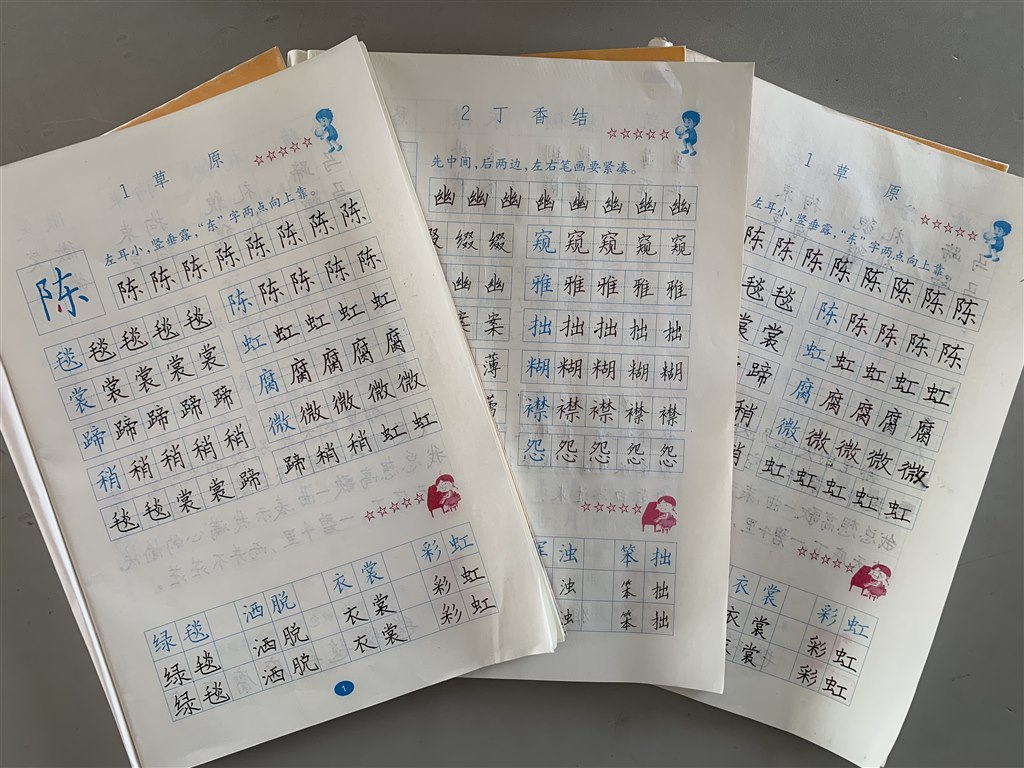 1 草 原
左耳小,竖垂露,“东”字两点向上靠。
陈 陈陈陈陈陈陈陈陈
毯毯毯毯毯 陈陈陈陈陈
裳裳裳裳裳 虹虹虹虹虹
蹄蹄蹄蹄蹄 腐腐腐腐腐
稍稍稍稍稍 微微微微微
毯毯裳裳蹄 蹄稍稍虹虹
绿毯 洒脱 衣裳 彩虹
绿毯 洒脱 衣裳 彩虹
绿毯 洒脱 衣裳 彩虹
1
2 丁 香 结
先中间,后两边,左右笔画要紧凑。
幽幽幽幽幽幽幽幽
缀缀 窥窥窥窥窥
幽幽 雅雅雅雅雅
案 拙拙拙拙拙
薄 糊糊糊糊糊
襟襟襟襟襟
怨怨怨怨怨
浊 笨拙
浊 笨拙
浊 笨拙
1 草 原
左耳小,竖垂露,“东”字两点向上靠。
陈陈陈陈陈陈陈陈
毯毯 陈陈陈陈陈
裳裳 虹虹虹虹虹
蹄 腐腐腐腐腐
稍 微微微微微
虹虹虹虹虹
衣裳 彩虹
衣裳 彩虹
衣裳 彩虹